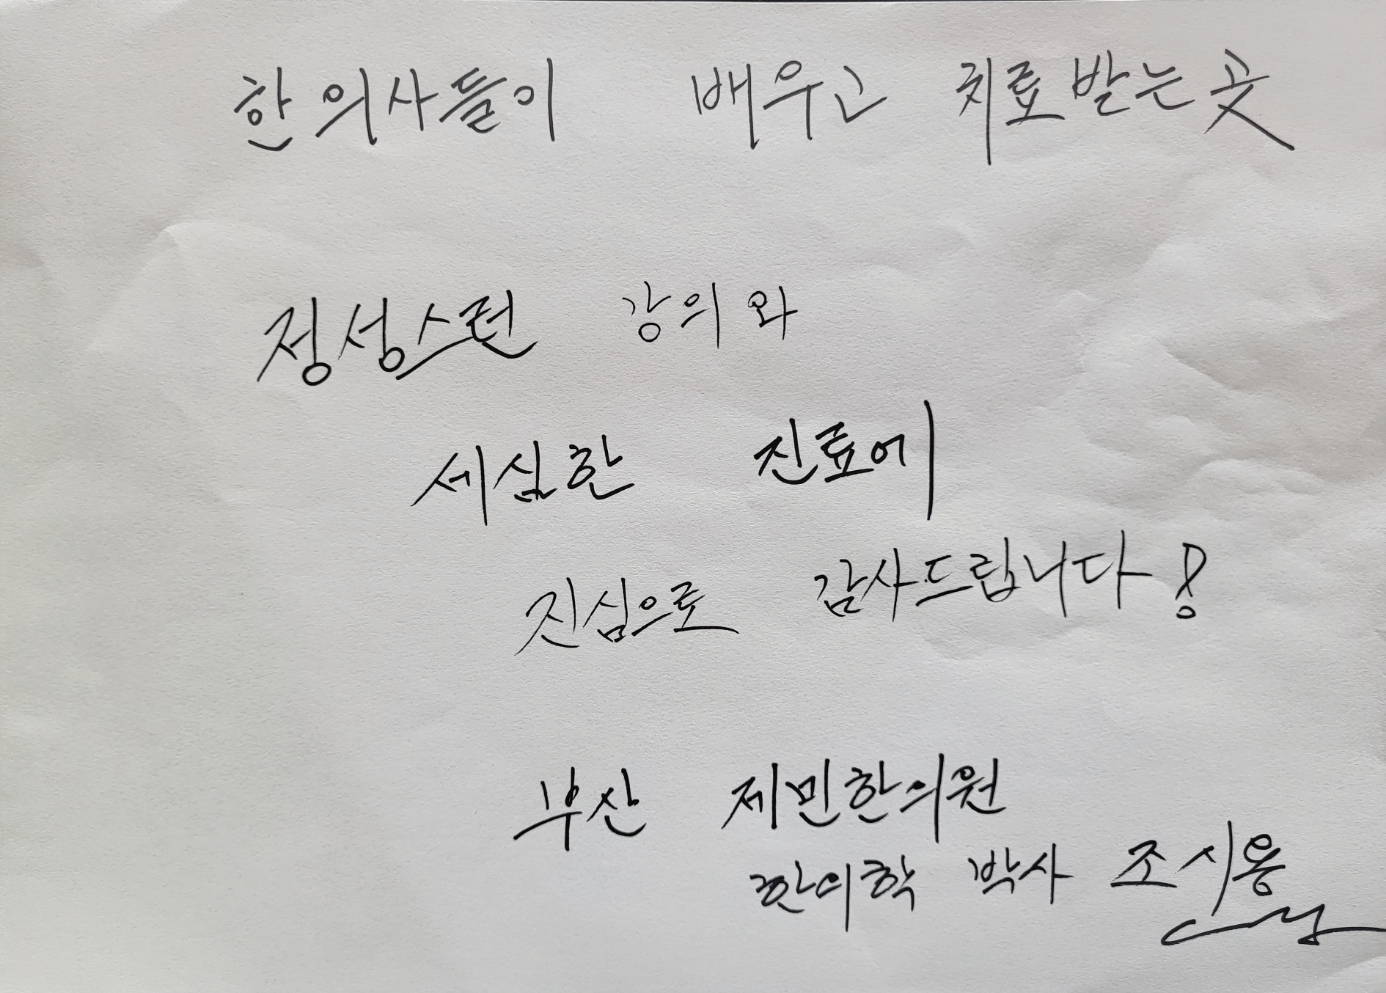 한의사들이 배우고 치료받는 곳
정성스런 강의와
세심한 진료에
진심으로 감사드립니다!
부산 제민한의원
한의학 박사 조시용